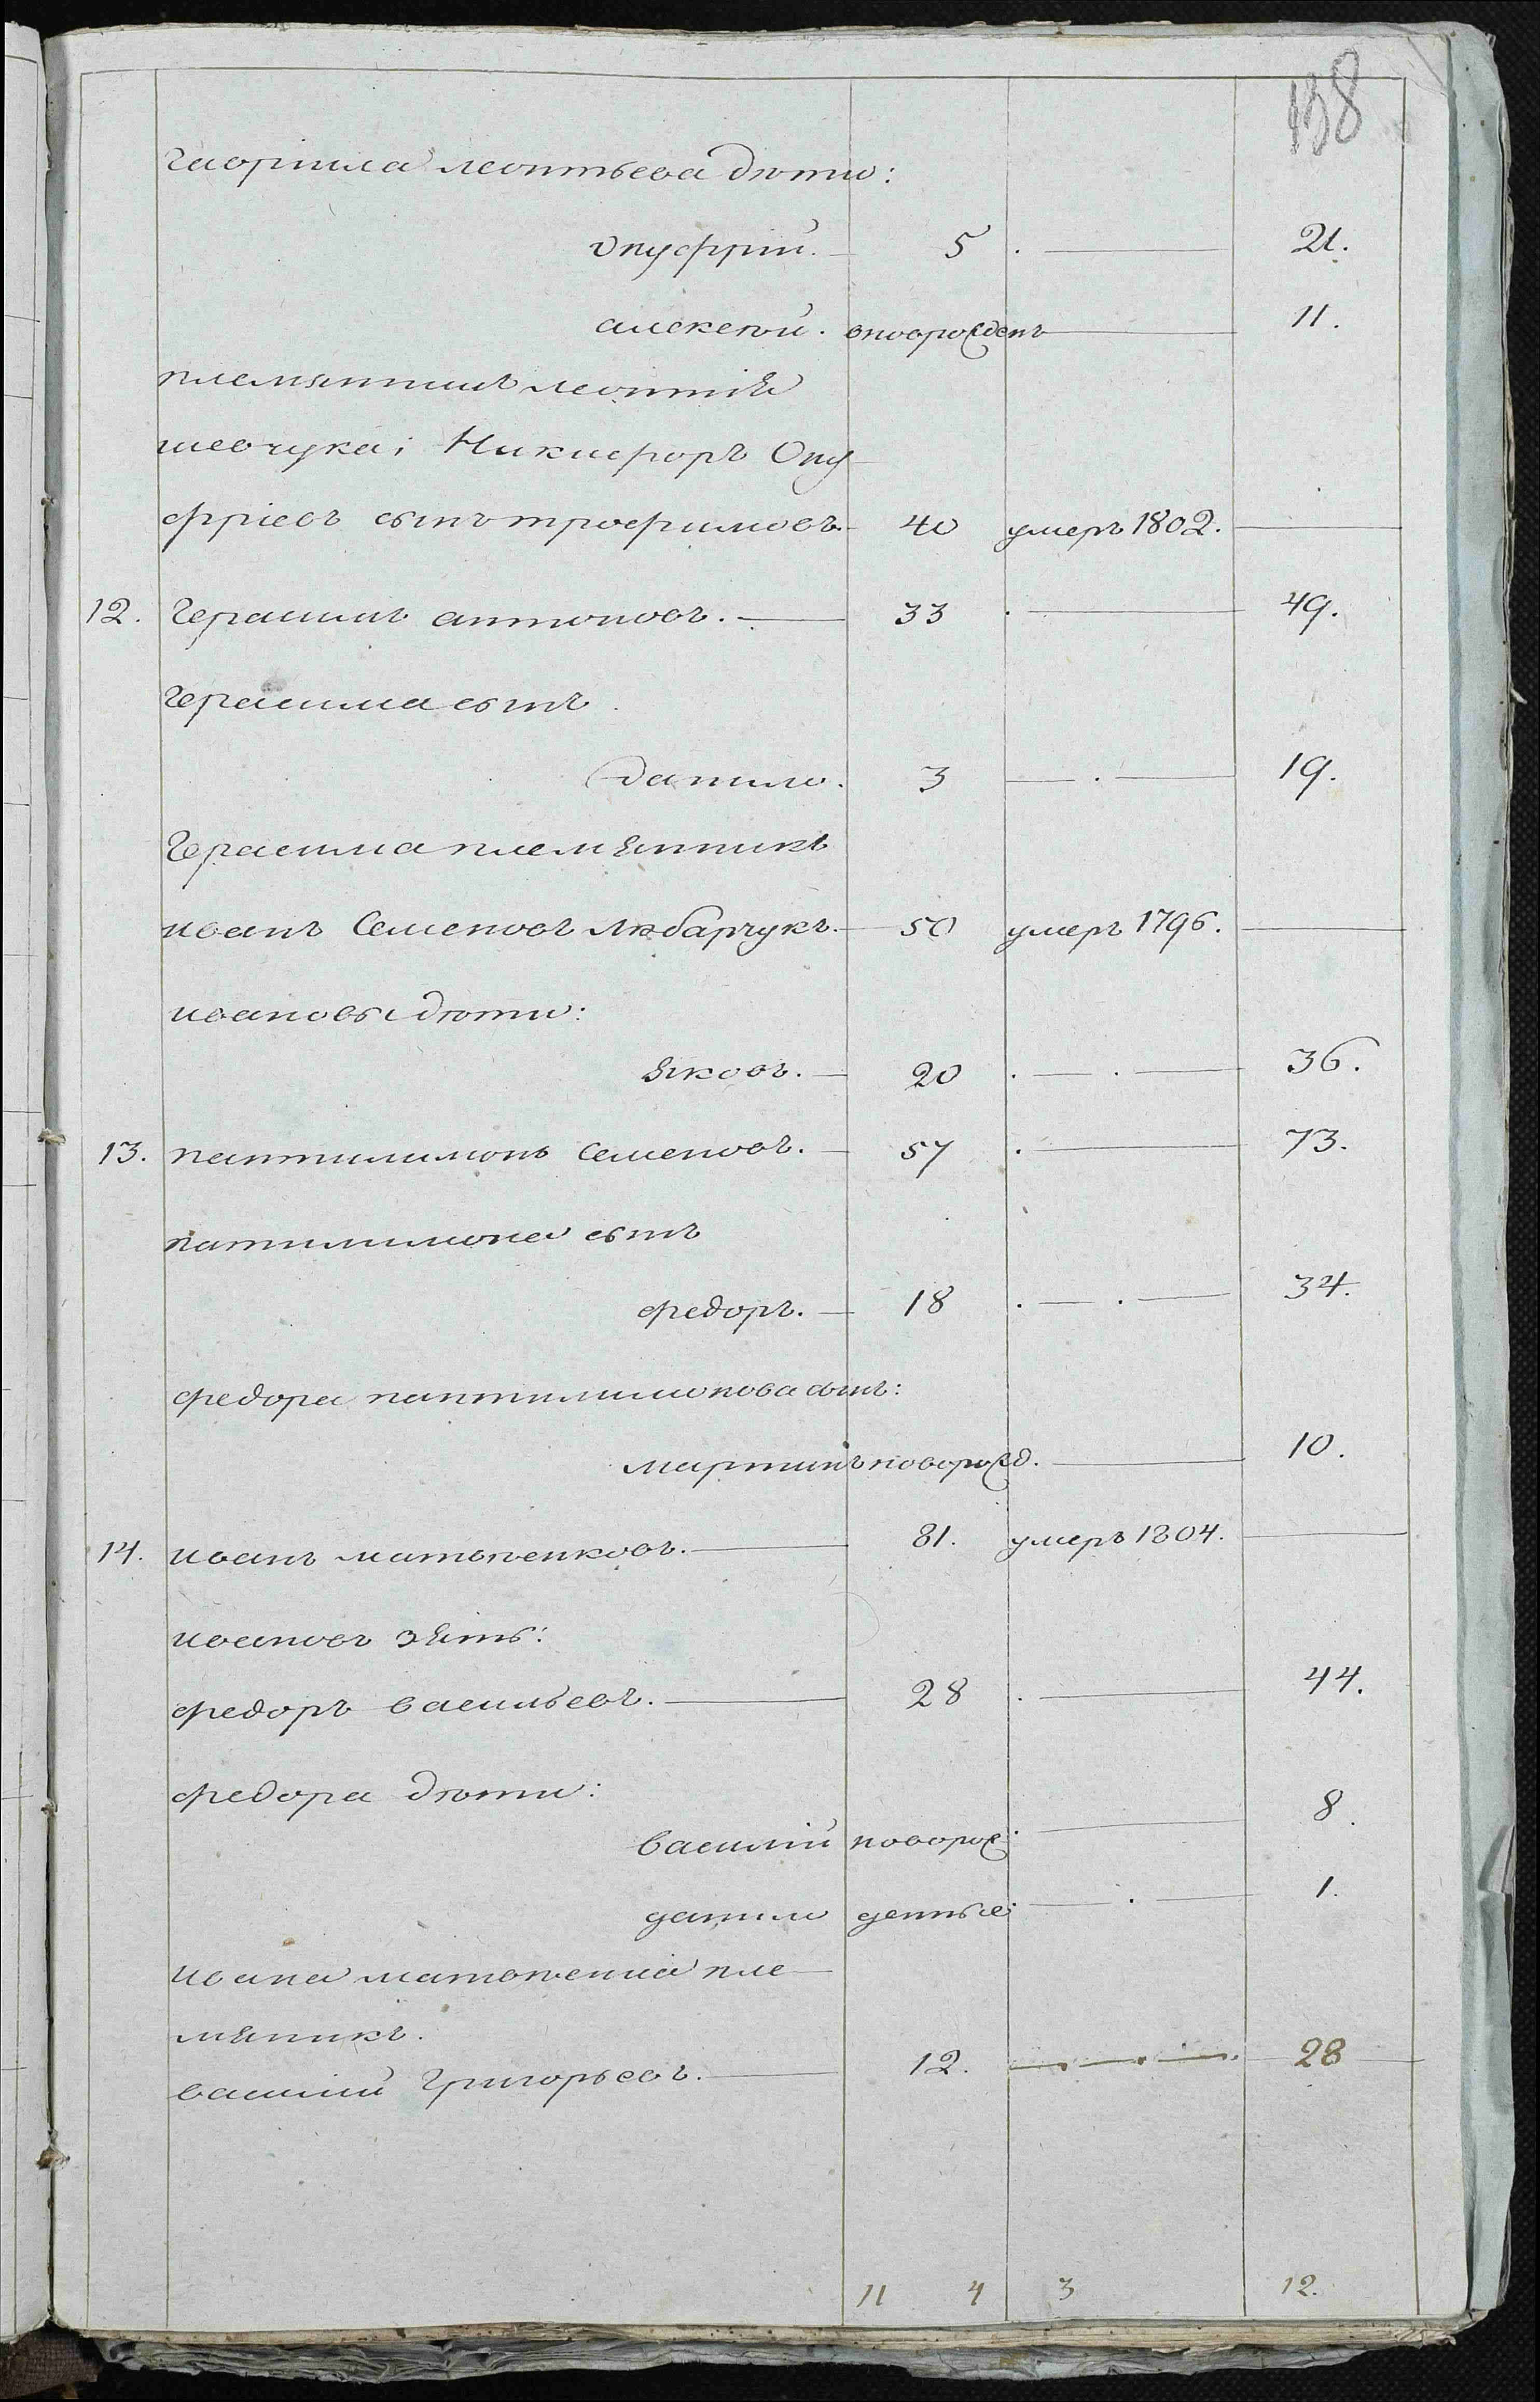 138
гаврiила леонтьева дѣти:
онуфрiй. 5 21.
алексѣй. вноврожденъ 11.
племянникъ леонтiя
шевчука; Никифоръ Ону
фрiевъ сынъ трофимовъ 40 умеръ 1802.
12. Герасимъ антоновъ. 33 49.
герасима сынъ
данило. 3 19.
Герасима племянникъ
иванъ Семеновъ любарчукъ. 50 умеръ 1796.
ивановы дѣти:
яковъ. 20 36.
13. пантилимонъ семеновъ. 57 73.
патилимона сынъ
федоръ. 18 34.
федора пантилимонова сынъ:
мартинъ новорожд. 10.
14. иванъ матвѣенковъ. 81. умеръ 1804.
ивановъ зять:
федоръ васильевъ. 28 44.
федора дѣти:
василiй новорож 8.
данило денные 1.
ивана матвѣенка пле
мяникъ.
василiй Григорьевъ. 12. 28
11 4 3 12.